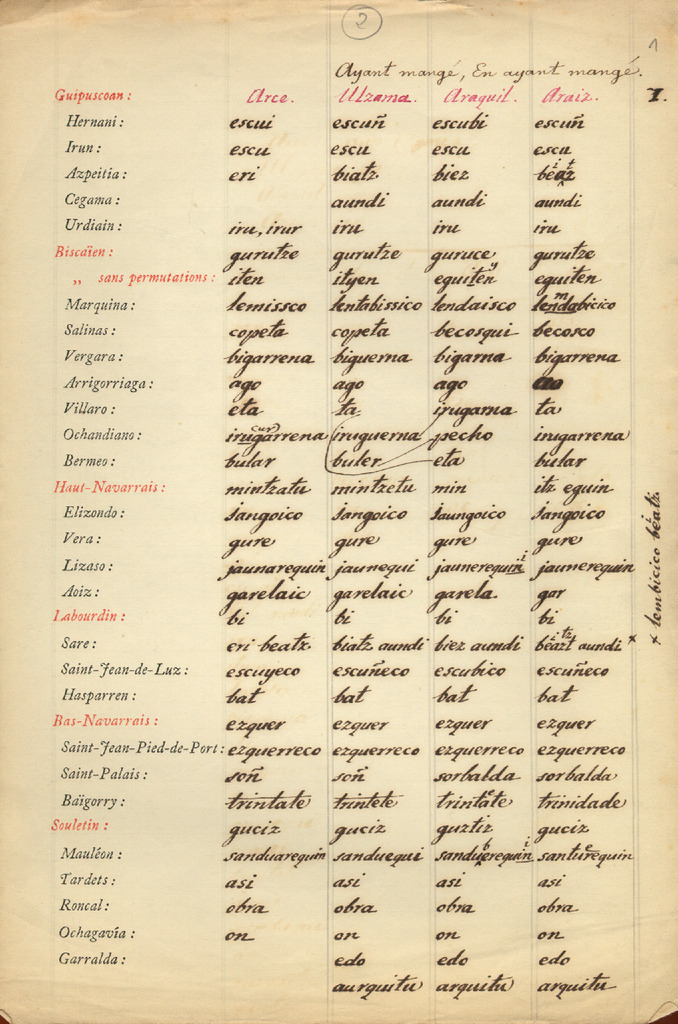 2
1
Ayant mangé, En ayant mangé.
Guipuscoan: Arce. Ulzama. Araquil. Araiz. I.
Hernani: escui escuñ escubi escuñ
Irun: escu escu escu escu
Azpeitia: eri biatz biez
Cegama: aundi aundi aundi
Urdiain: iru, irur iru iru iru
Biscaïen: gurutze gurutze guruce gurutze
„ sans permutations: iten ityen eguiten y eguiten
Marquina: lemissco lentabissico lendaisco lendabicico m
Salinas: copeta copeta becosqui becosco
Vergara: bigarrena biguerna bigarna bigarrena
Arrigorriaga: ago ago ago
Villaro: eta ta irugarna ta
Ochandiano: irugarrena cur iruguerna pecho irugarrena
Bermeo: bular buler eta bular
Haut-Navarrais: mintzatu mintzetu min itz eguin
Elizondo: jangoico jangoico jaungoico jangoico
Vera: gure gure gure gure
Lizaso: jaunarequin jaunequi jaunerequin i jaunerequin
Aoiz: garelaic garelaic garela gar
Labourdin: bi bi bi bi
Sare: eri beatz biatz aundi biez aundi aundi ×
Saint-Jean-de-Luz: escuyeco escuñeco escubico escuñeco
Hasparren: bat bat bat bat
Bas-Navarrais: ezquer ezquer ezquer ezquer
Saint-Jean-Pied-de-Port: ezquerreco ezquerreco ezquerreco ezquerreco
Saint-Palais: soñ soñ sorbalda sorbalda
Baïgorry: trintate trintete trintate e trinidade
Souletin: guciz guciz guztiz guciz
Mauléon: sanduarequin sanduequi sanduerequin b i santurequin e
Tardets: asi asi asi asi
Roncal: obra obra obra obra
Ochagavia: on on on on
Garralda: edo edo edo
aurquitu arquitu arquitu
× lembicico béatz